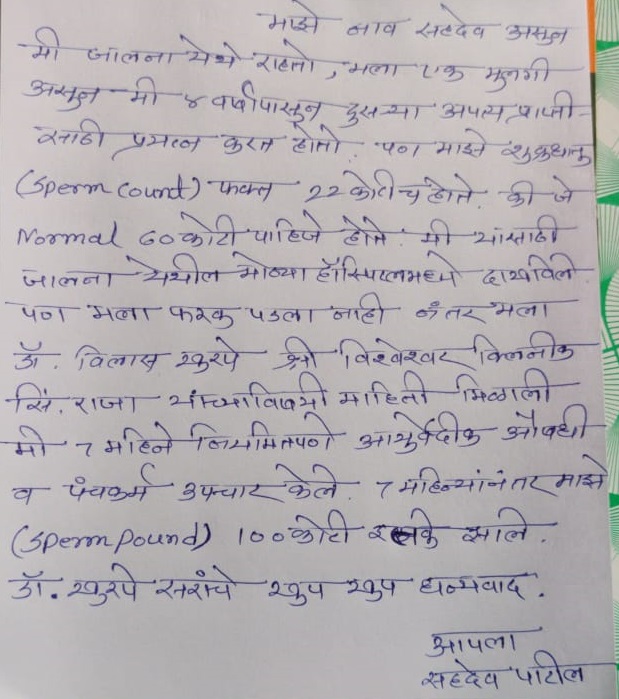 माझे नाव सहदेव असुन
मी जालना येथे राहतो, मला एक मुलगी
असुन मी ४ वर्षापासुन दुसऱ्या अपत्य प्राप्ती-
साठी प्रयत्न करत होतो. पण माझे शुक्रधातु
(Sperm Cound) फक्त 22 कोटीच होते. की जे
Normal 60 कोटी पाहिजे होते. मी यासाठी
जालना येथील मोठ्या हॉस्पिटलमध्ये दाखविले
पण मला फरक पडला नाही नंतर मला
डॉ. विलास खुरपे श्री विश्वेश्वर क्लिनीक
सिं. राजा यांच्याविषयी माहिती मिळाली
मी 7 महिने नियमितपणे आयुर्वेदीक औषधी
व पंचकर्म उपचार केले. 7 महिन्यांनंतर माझे
(Sperm pound) 100 कोटी इतके झाले.
डॉ. खुरपे सरांचे खुप खुप धन्यवाद.
आपला
सहदेव पाटील